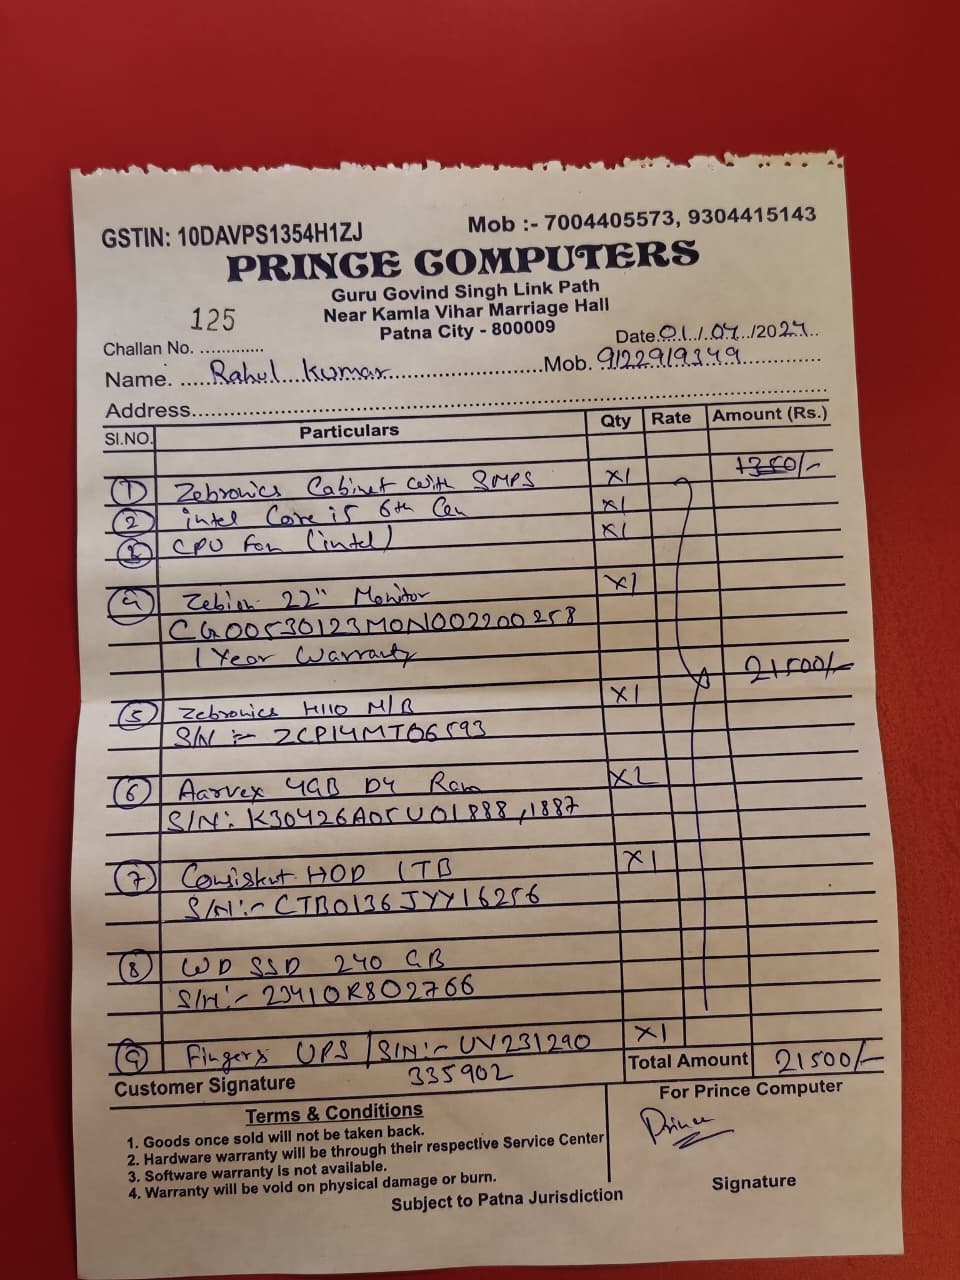 GSTIN: 10DAVPS1354H1ZJ Mob :- 7004405573, 9304415143
PRINCE COMPUTERS
Guru Govind Singh Link Path
Near Kamla Vihar Marriage Hall
Patna City - 800009
125
Challan No. ............. Date.01../.04../2024..
Name. .....Rahul....Kumar..........................Mob. 9122919349................
Address..........................................................................................
SI.NO. Particulars Qty Rate Amount (Rs.)
1 Zebronics Cabinet with SMPS X1 1350/-
2 intel Core i5 6th Gen X1
3 CPU Fan (intel) X1
4 22" Monitor X1
CG00530123MON002200258
1 Year Warranty 21500/-
5 Zebronics H110 M/B X1
S/N :- ZCP14MT06593
6 Aarvex 4GB D4 Ram X2
S/N: K30426A05U01888,1887
7 Consistent HDD 1TB X1
S/N:- CTB0136JYY16256
8 WD SSD 240 GB
S/N:- 23410R802766
9 Fingers UPS | S/N:- UV231290 X1
335902
Total Amount 21500/-
Customer Signature For Prince Computer
Terms & Conditions
1. Goods once sold will not be taken back.
2. Hardware warranty will be through their respective Service Center
3. Software warranty is not available.
4. Warranty will be void on physical damage or burn.
Prince
Signature
Subject to Patna Jurisdiction